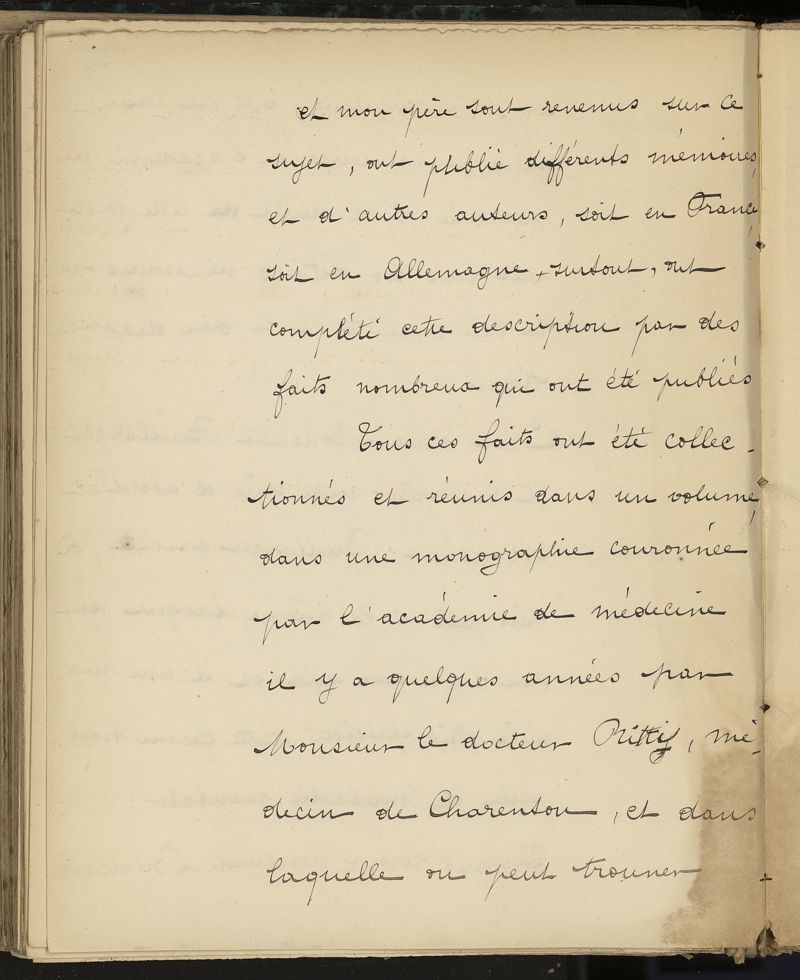 et mon père sont revenus sur ce
sujet, ont publié différents mémoires,
et d'autres auteurs, soit en France,
soit en Allemagne, surtout, ont
complété cette description par des
faits nombreux qui ont été publiés
Tous ces faits ont été collec-
tionnés et réunis dans un volume,
dans une monographie couronnée
par l'académie de médecine
il y a quelques années par
Monsieur le docteur Ritti, mé-
decin de Charenton, et dans
laquelle on peut trouver